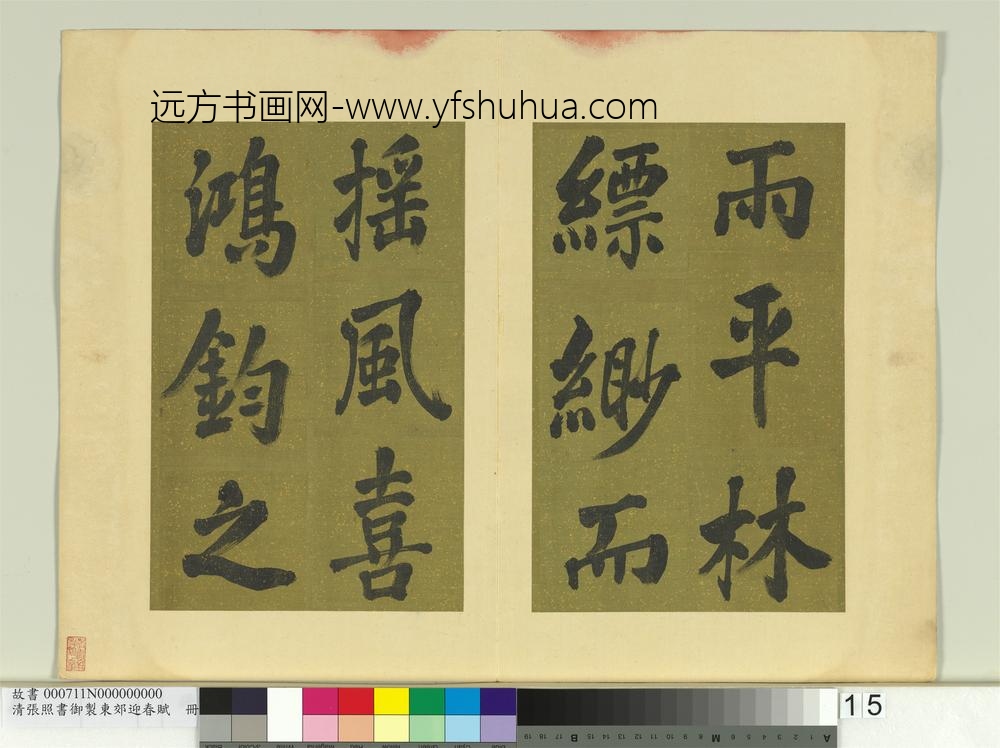 远方书画网-www.yfshuhua.com
雨平林
縹緲而
揺風喜
鴻鈞之
故書 000711N000000000
清張照書御製東郊迎春賦 冊
15